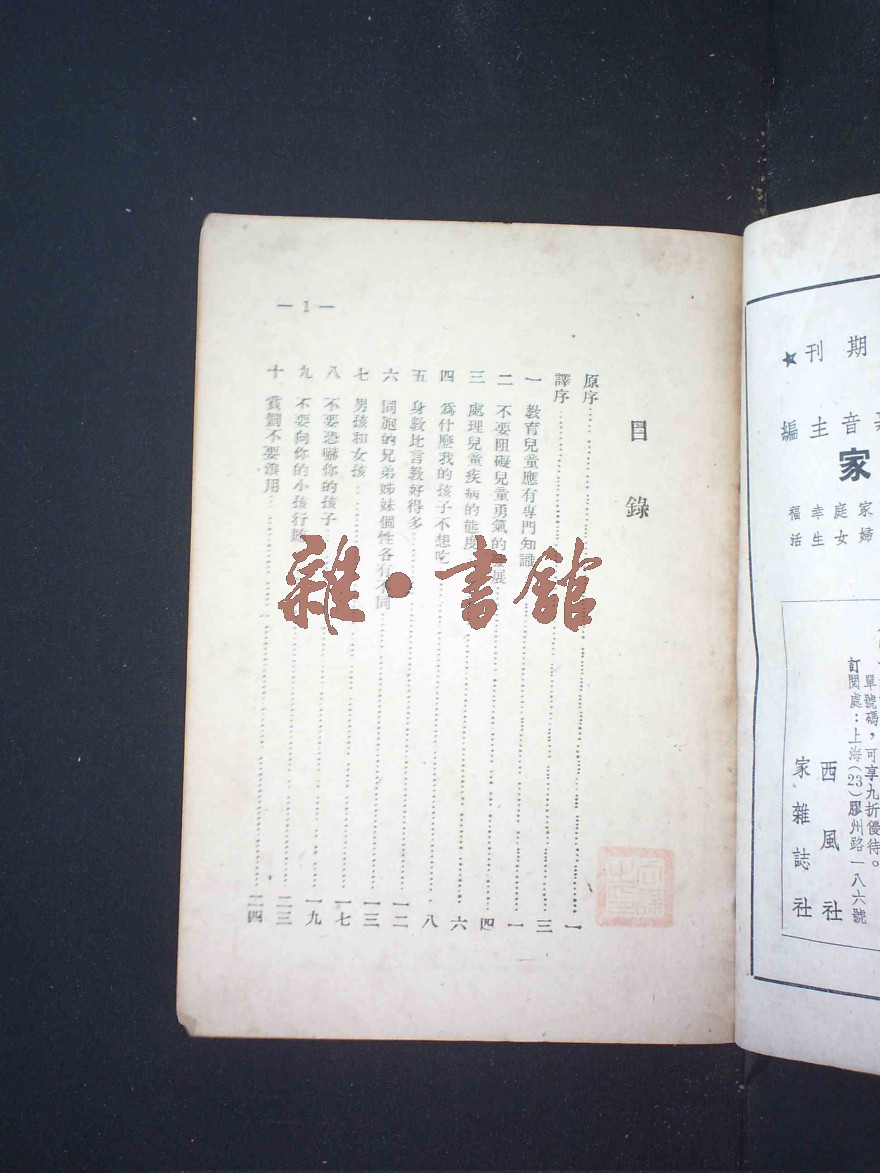 目錄
原序 一
譯序 三
一 教育兒童應有專門知識 一
二 不要阻礙兒童勇氣的發展 四
三 處理兒童疾病的態度 六
四 爲什麽我的孩子不想吃 八
五 身教比言教好得多 一二
六 同胞的兄弟姊妹個性各有不同 一三
七 男孩和女孩 一七
八 不要恐嚇你的孩子 一九
九 不要向你的小孩行 二三
十 責罰不要濫用 二四
— 1 —
雜·書館
期刊★
音主編
家
家庭幸福
婦女生活
單號碼,可享九折優待。
訂閱處:上海(23)膠州路一八六號
西風社
家雜誌社